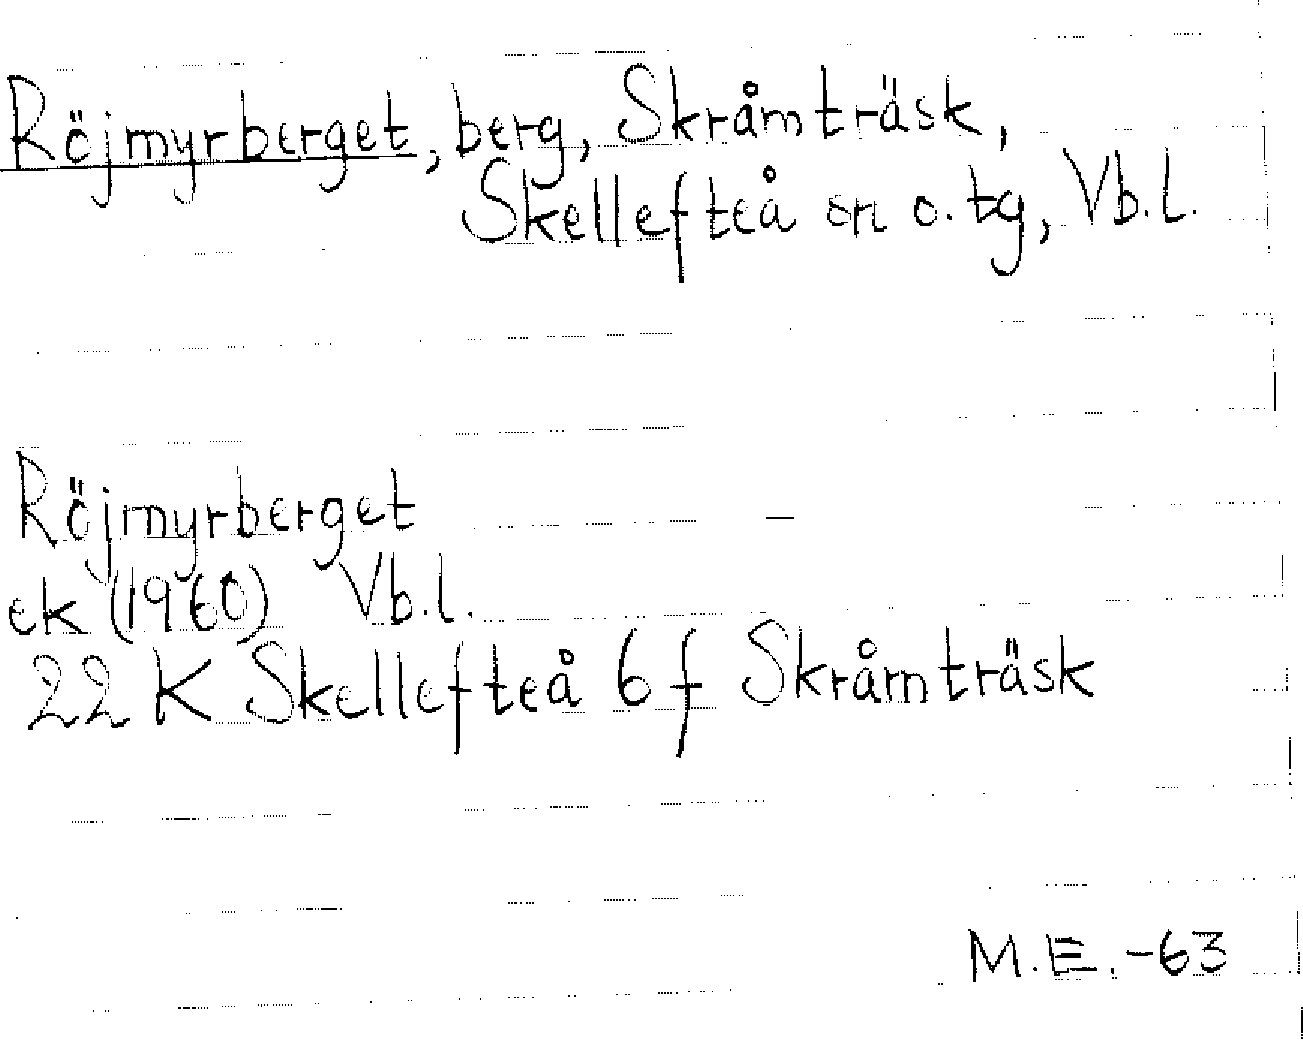 Röjmyrberget, berg, Skråmträsk,
Skellefteå sn o. tg, Vb.l.
Röjmyrberget
ek (1960) Vb.l.
22 K Skellefteå 6 f Skråmträsk
M.E.-63